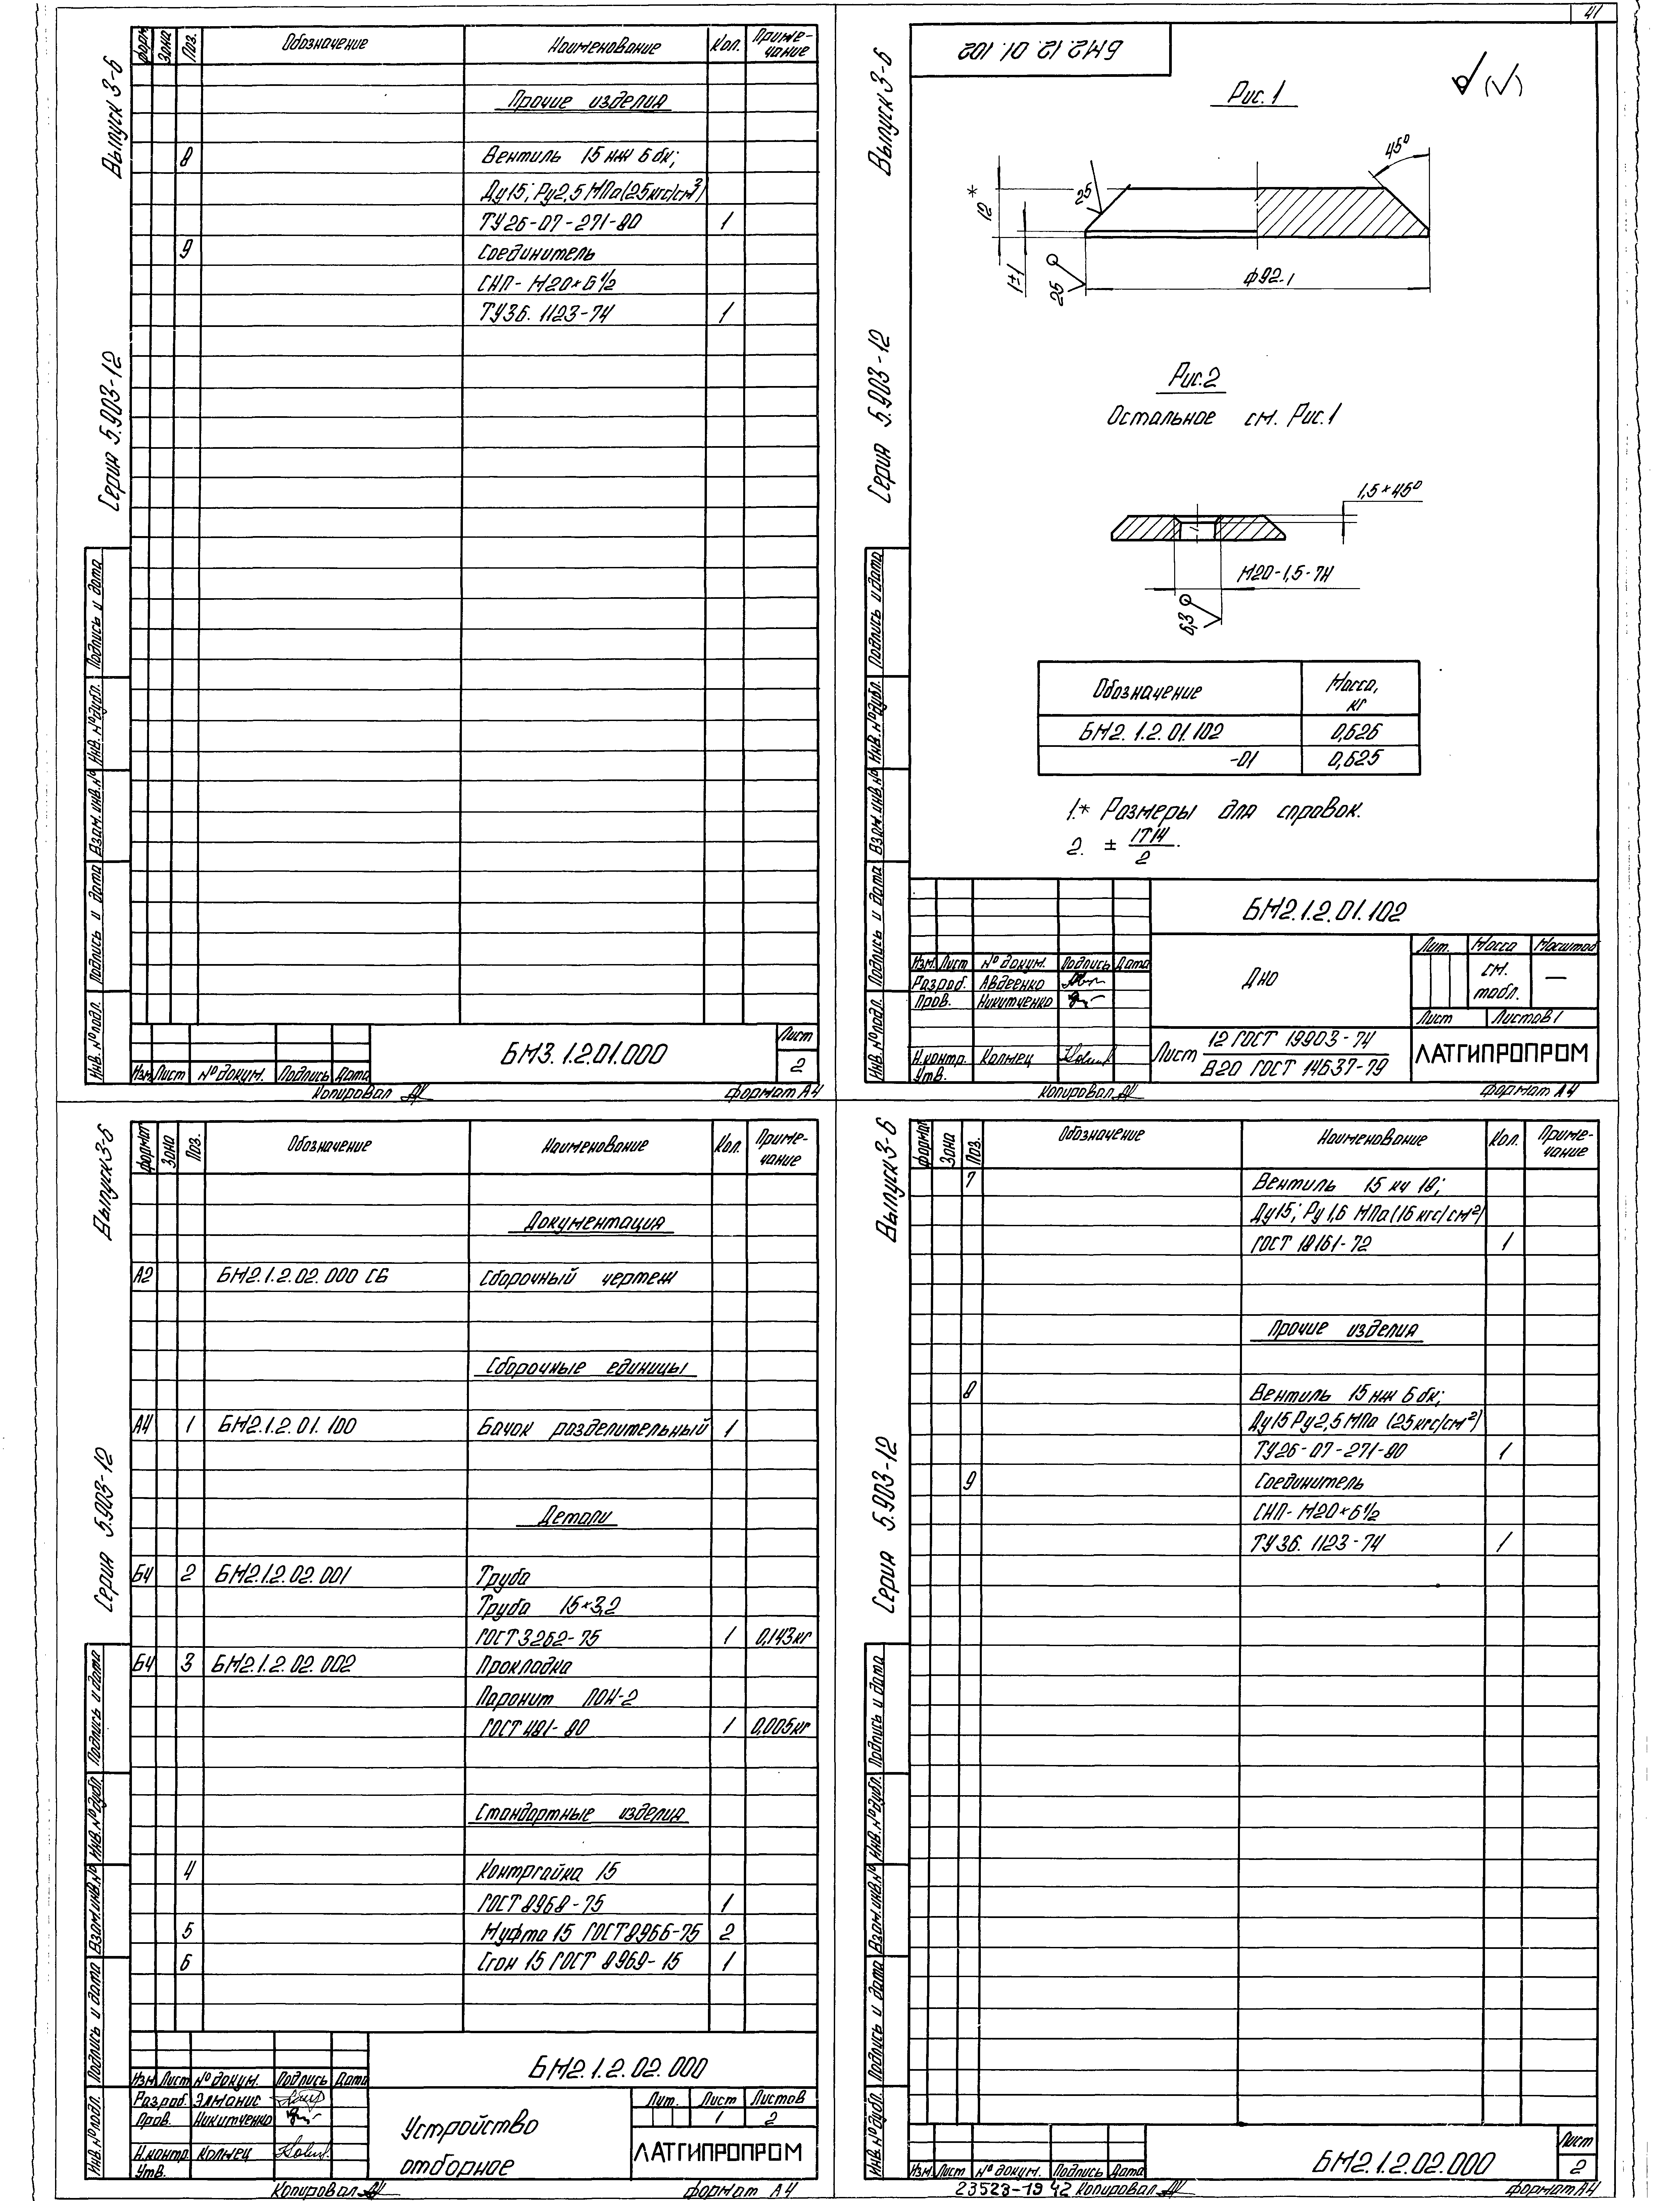 41
Выпуск 3-6
Серия 5.903-12
Форм. Зона Поз. Обозначение Наименование Кол. Приме-
чание
Прочие изделия
8 Вентиль 15 нж 6 бк;
Ду15; Ру2,5 МПа (25кгс/см³)
ТУ26-07-271-80 1
9 Соединитель
СНП-М20×G½
ТУ36.1123-74 1
Подпись и дата
Инв. № дубл.
Взам. инв. №
Подпись и дата
Инв. № подл.
Изм. Лист № докум. Подпись Дата
БМ3.1.2.01.000
Лист
2
Копировал
Формат А4
Выпуск 3-6
Серия 5.903-12
БМ2.1.2.01.102
Рис. 1
45°
25
12*
1±1
25
ф92-1
Рис. 2
Остальное см. Рис. 1
1,5×45°
М20-1,5-7Н
6,3
Обозначение Масса,
кг
БМ2.1.2.01.102 0,626
-01 0,625
1.* Размеры для справок.
2. ± IT14
2
Подпись и дата
Инв. № дубл.
Взам. инв. №
Подпись и дата
Инв. № подл.
БМ2.1.2.01.102
Изм. Лист № докум. Подпись Дата
Разраб. Авдеенко
Пров. Никитченко
Н.контр. Колмец
Утв.
Дно
Лит. Масса Масштаб
см.
табл. —
Лист Листов 1
Лист 12 ГОСТ 19903-74
В20 ГОСТ 14637-79
ЛАТГИПРОПРОМ
Копировал
Формат А4
Выпуск 3-6
Серия 5.903-12
Формат Зона Поз. Обозначение Наименование Кол. Приме-
чание
Документация
А2 БМ2.1.2.02.000 СБ Сборочный чертеж
Сборочные единицы
А4 1 БМ2.1.2.01.100 Бачок разделительный 1
Детали
Б4 2 БМ2.1.2.02.001 Труба
Труба 15×3,2
ГОСТ 3262-75 1 0,143кг
Б4 3 БМ2.1.2.02.002 Прокладка
Паронит ПОН-2
ГОСТ 481-80 1 0,005кг
Стандартные изделия
4 Контргайка 15
ГОСТ 8968-75 1
5 Муфта 15 ГОСТ 8966-75 2
6 Сгон 15 ГОСТ 8969-75 1
Подпись и дата
Инв. № дубл.
Взам. инв. №
Подпись и дата
Инв. № подл.
Изм. Лист № докум. Подпись Дата
Разраб. Элманис
Пров. Никитченко
Н.контр. Колмец
Утв.
БМ2.1.2.02.000
Устройство
отборное
Лит. Лист Листов
1 2
ЛАТГИПРОПРОМ
Копировал
Формат А4
Выпуск 3-6
Серия 5.903-12
Формат Зона Поз. Обозначение Наименование Кол. Приме-
чание
7 Вентиль 15 кч 18;
Ду15; Ру 1,6 МПа (16 кгс/см²)
ГОСТ 18161-72 1
Прочие изделия
8 Вентиль 15 нж 6 бк;
Ду15 Ру2,5 МПа (25 кгс/см²)
ТУ26-07-271-80 1
9 Соединитель
СНП-М20×G½
ТУ36.1123-74 1
Подпись и дата
Инв. № дубл.
Взам. инв. №
Подпись и дата
Инв. № дубл.
Изм. Лист № докум. Подпись Дата
БМ2.1.2.02.000
Лист
2
23523-19 42 Копировал
Формат А4